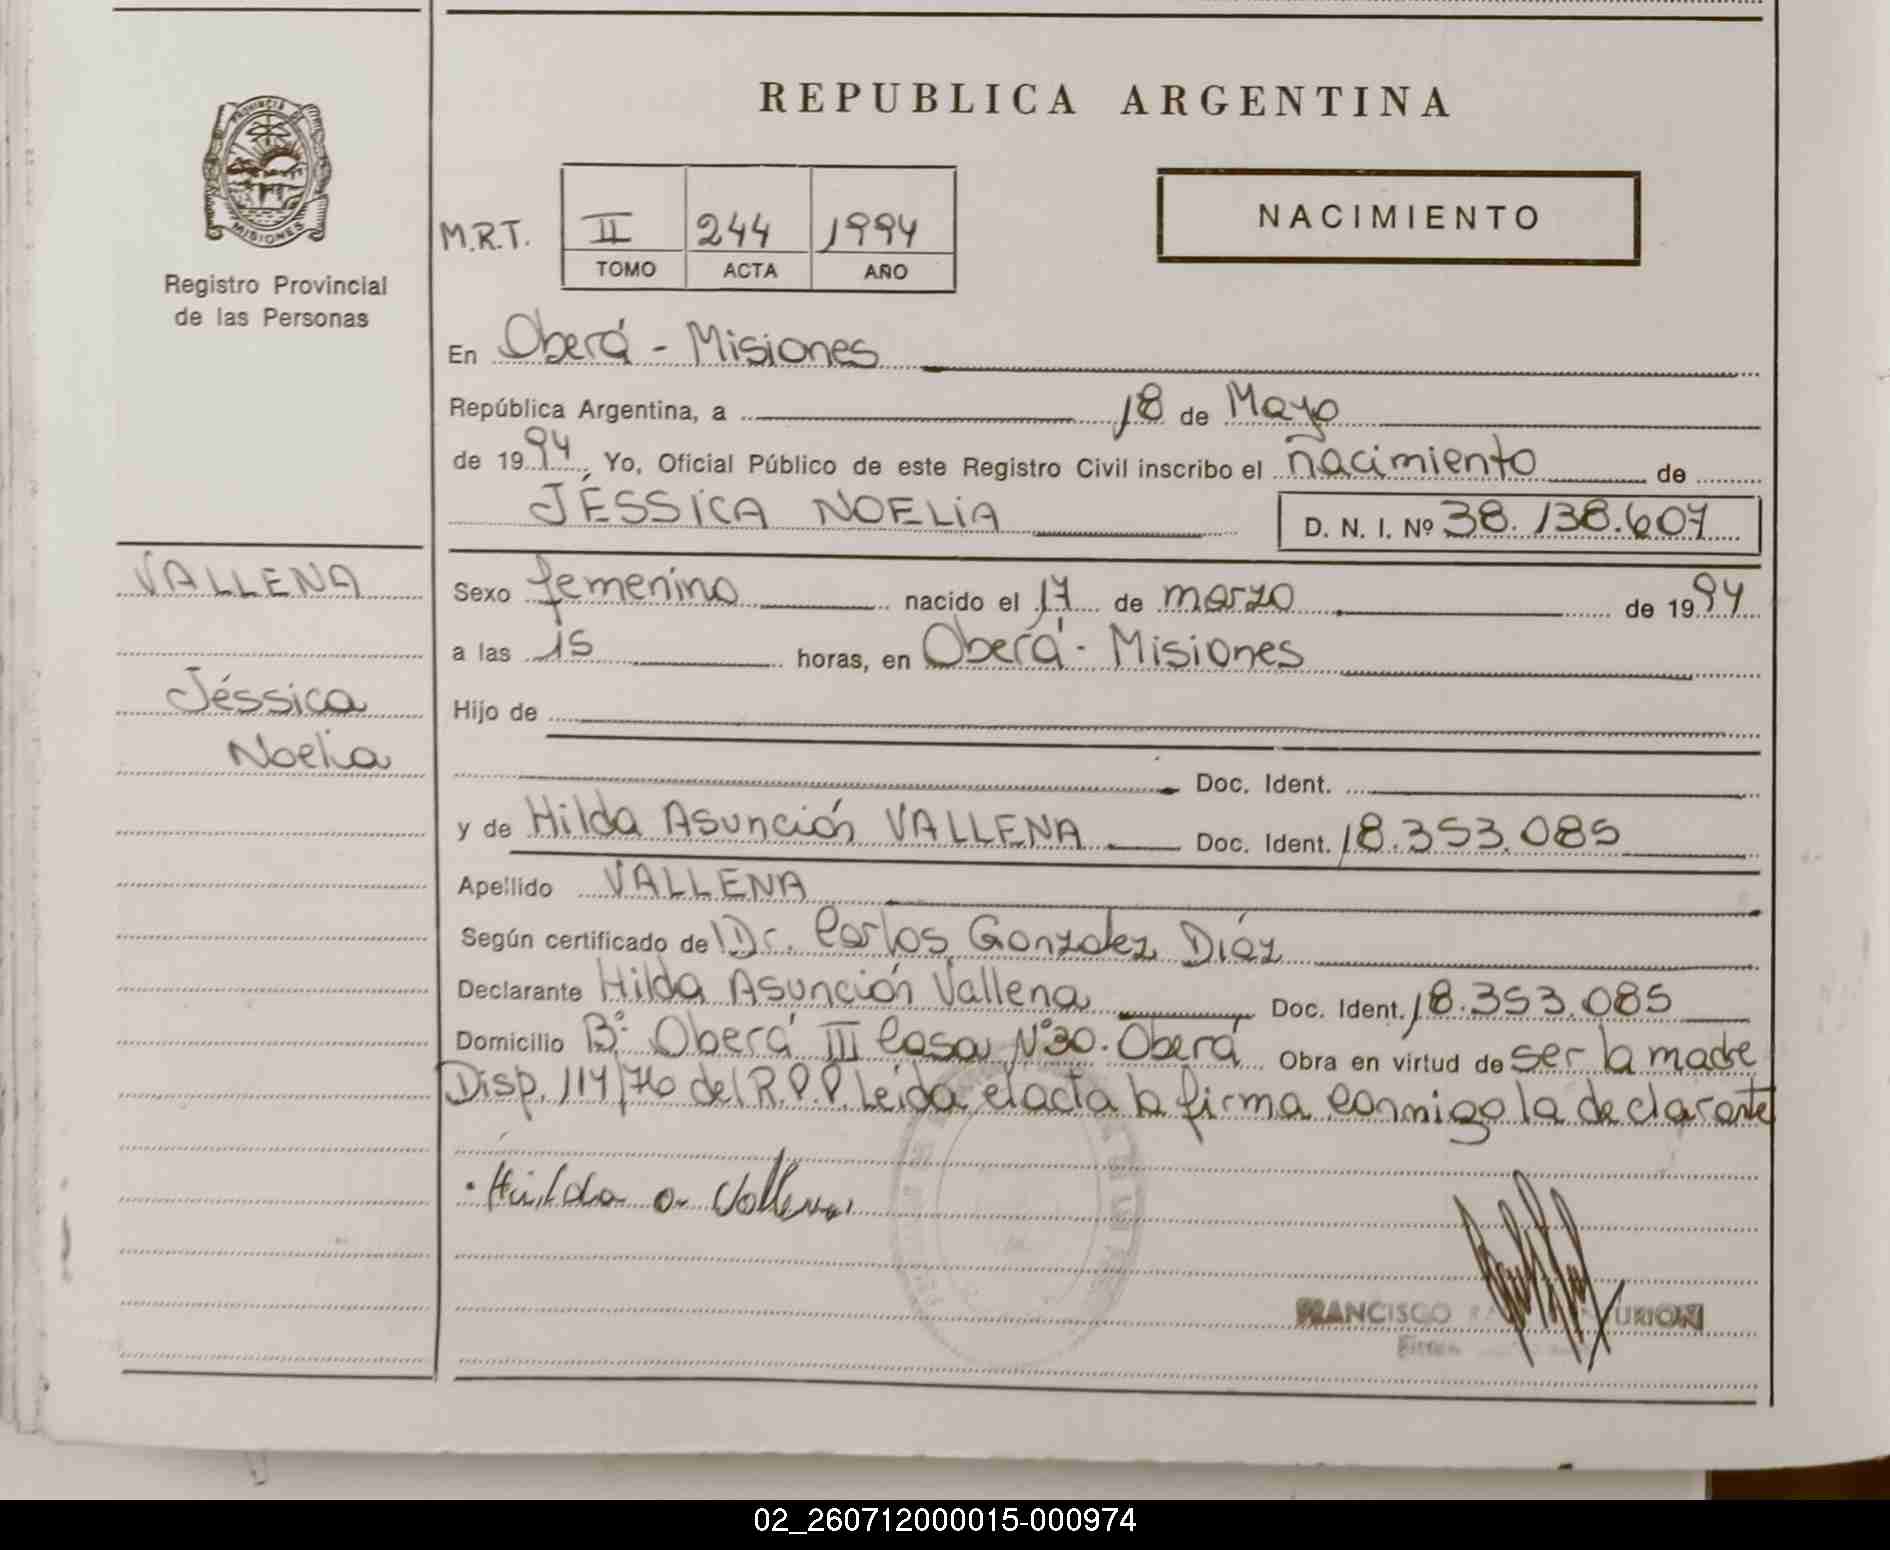 REPUBLICA ARGENTINA
PROVINCIA DE
MISIONES
Registro Provincial
de las Personas
NACIMIENTO
M.R.T. II 244 1994
TOMO ACTA AÑO
En Oberá - Misiones
República Argentina, a 18 de Mayo
de 1994, Yo, Oficial Público de este Registro Civil inscribo el nacimiento de
JÉSSICA NOELIA D. N. I. Nº 38.138.607
VALLENA
Jéssica
Noelia
Sexo femenino nacido el 17 de marzo de 1994
a las 15 horas, en Oberá - Misiones
Hijo de
Doc. Ident.
y de Hilda Asunción VALLENA Doc. Ident. 18.353.085
Apellido VALLENA
Según certificado de Dr. Carlos Gonzalez Díaz
Declarante Hilda Asunción Vallena Doc. Ident. 18.353.085
Domicilio Bº Oberá III Casa Nº30. Oberá Obra en virtud de ser la madre
Disp. 114/76 del R.P.P. Leída el acta la firma conmigo la declarante
Hilda a Vallena
FRANCISCO
02_260712000015-000974